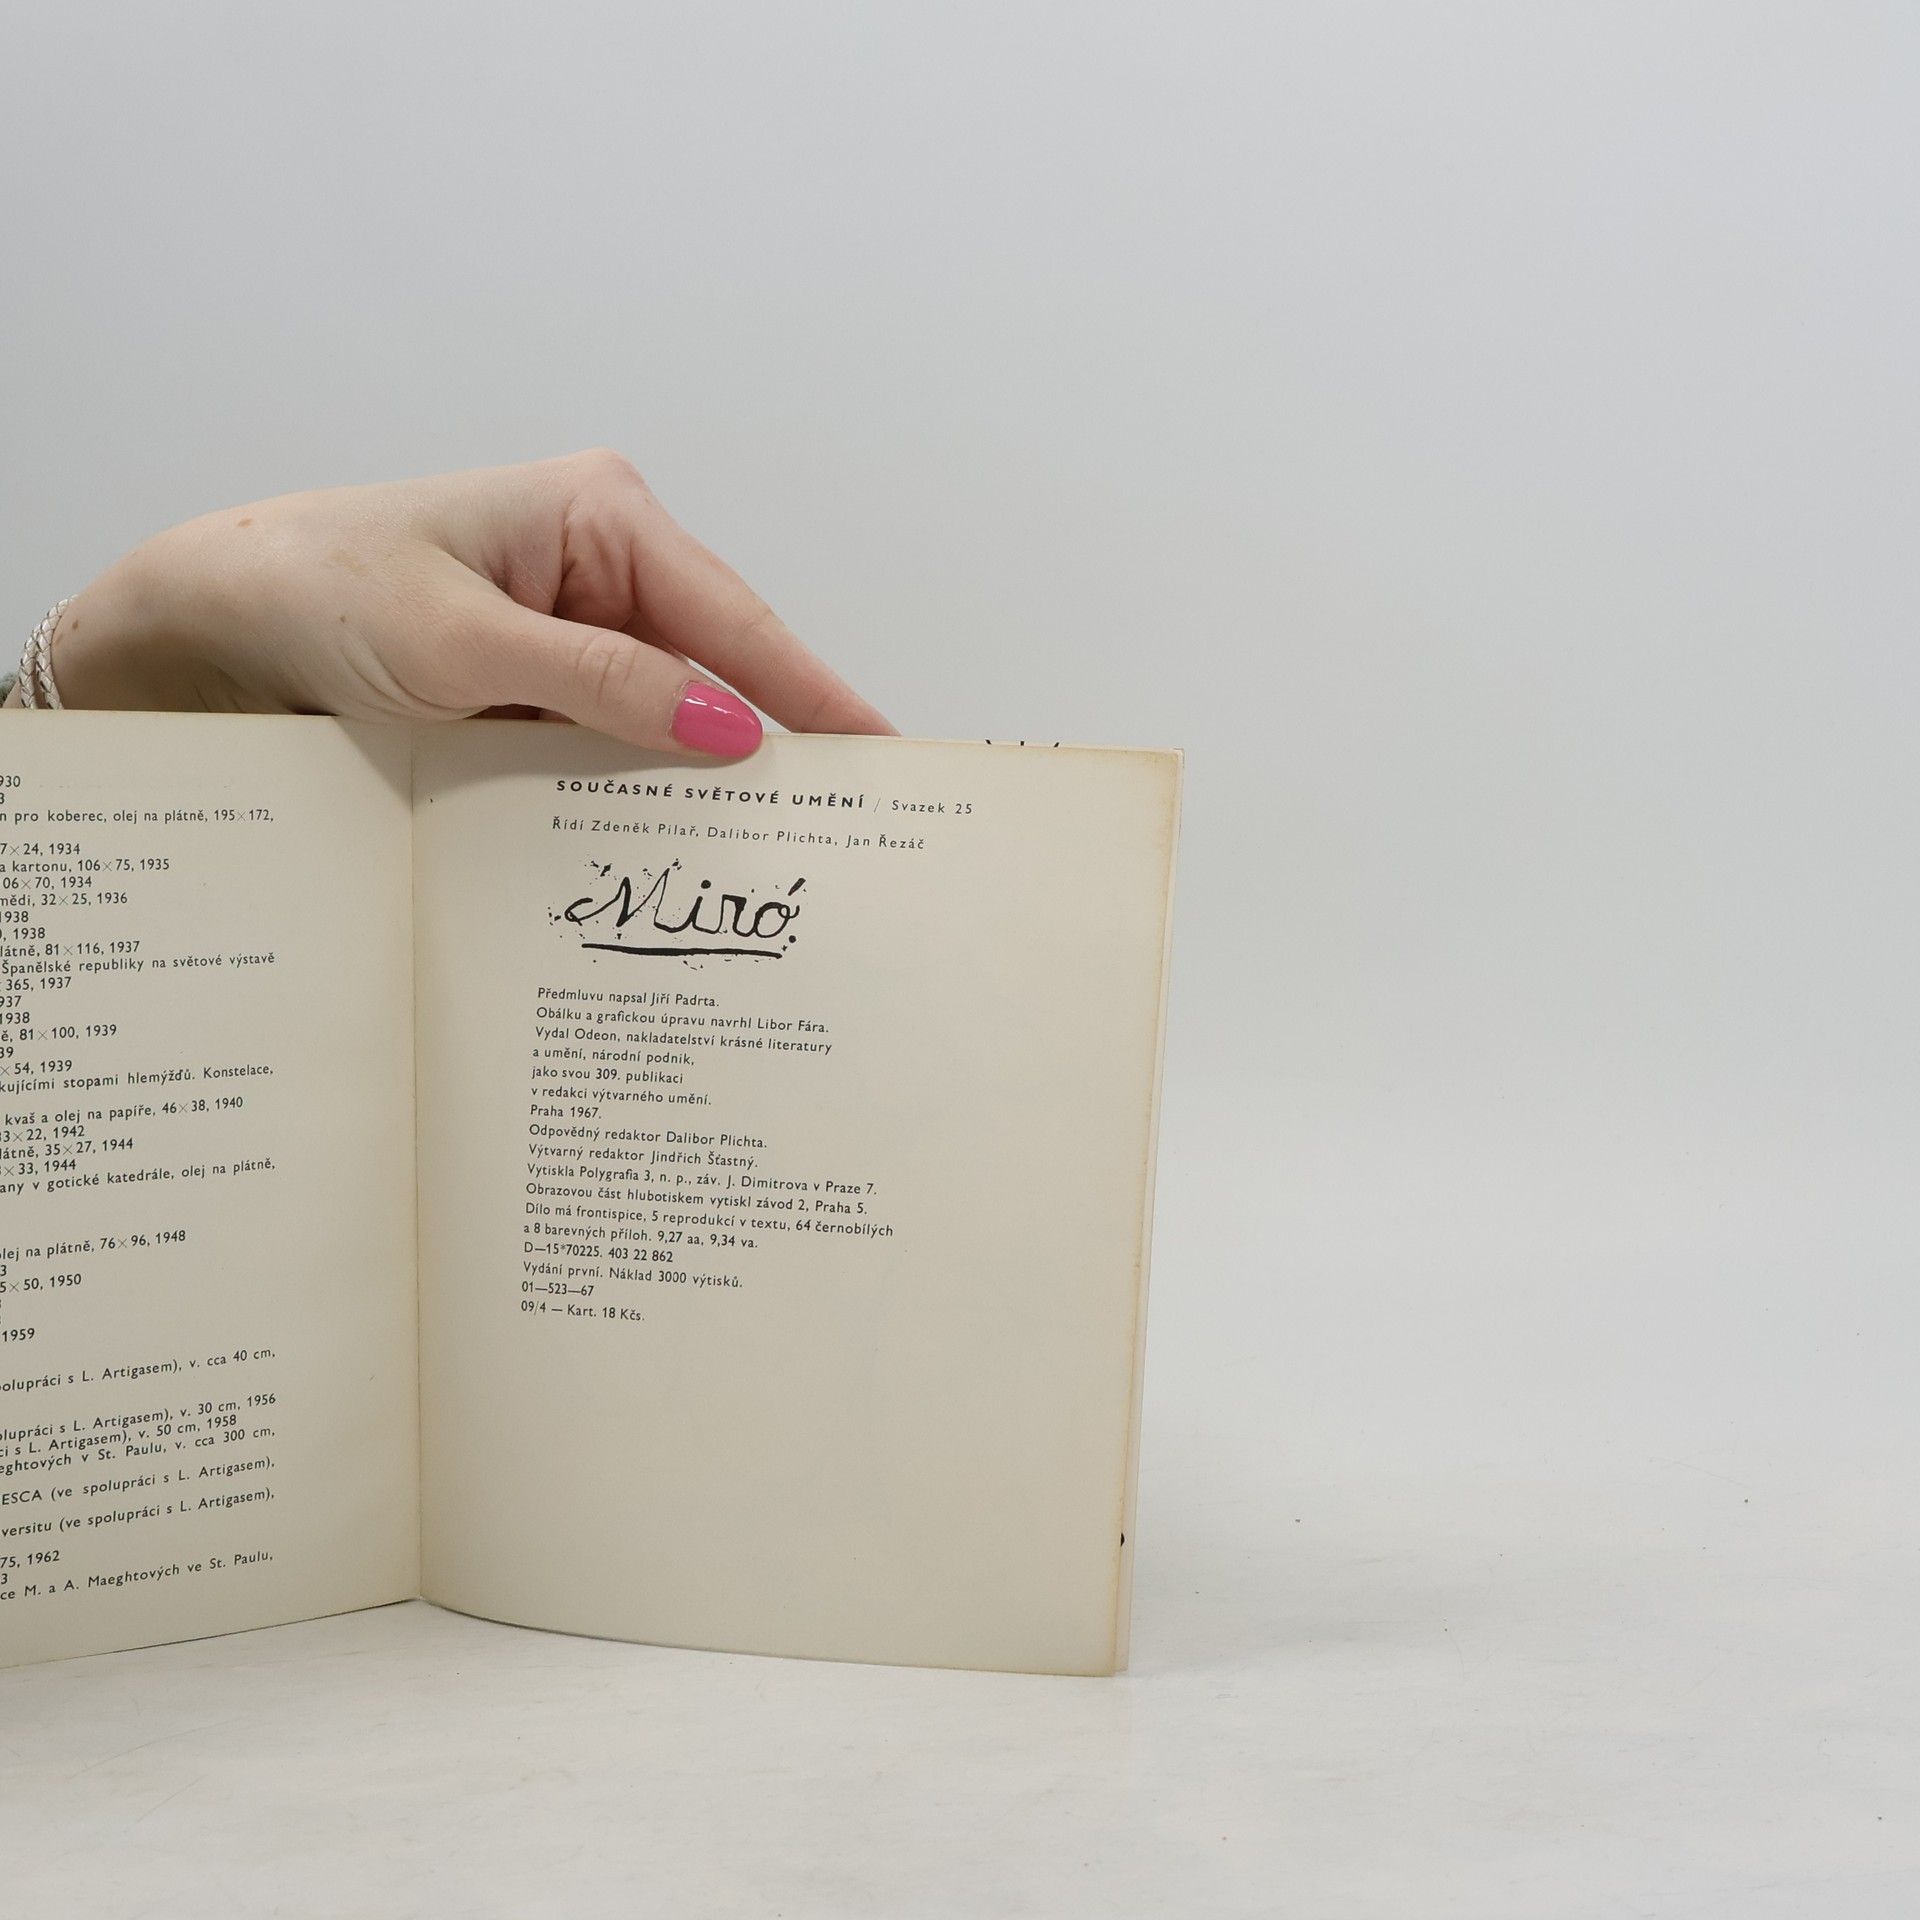 930
3
n pro koberec, olej na plátně, 195×172,
7×24, 1934
a kartonu, 106×75, 1935
06×70, 1934
mědi, 32×25, 1936
1938
, 1938
látně, 81×116, 1937
Španělské republiky na světové výstavě
365, 1937
937
1938
ě, 81×100, 1939
39
×54, 1939
kujícími stopami hlemýžďů. Konstelace,
kvaš a olej na papíře, 46×38, 1940
33×22, 1942
látně, 35×27, 1944
×33, 1944
any v gotické katedrále, olej na plátně,
olej na plátně, 76×96, 1948
3
5×50, 1950
1959
polupráci s L. Artigasem), v. cca 40 cm,
olupráci s L. Artigasem), v. 30 cm, 1956
ci s L. Artigasem), v. 50 cm, 1958
eghtových v St. Paulu, v. cca 300 cm,
ESCA (ve spolupráci s L. Artigasem),
versitu (ve spolupráci s L. Artigasem),
75, 1962
3
ce M. a A. Maeghtových ve St. Paulu,
SOUČASNÉ SVĚTOVÉ UMĚNÍ / Svazek 25
Řídí Zdeněk Pilař, Dalibor Plichta, Jan Řezáč
Miró.
Předmluvu napsal Jiří Padrta.
Obálku a grafickou úpravu navrhl Libor Fára.
Vydal Odeon, nakladatelství krásné literatury
a umění, národní podnik,
jako svou 309. publikaci
v redakci výtvarného umění.
Praha 1967.
Odpovědný redaktor Dalibor Plichta.
Výtvarný redaktor Jindřich Šťastný.
Vytiskla Polygrafia 3, n. p., záv. J. Dimitrova v Praze 7.
Obrazovou část hlubotiskem vytiskl závod 2, Praha 5.
Dílo má frontispice, 5 reprodukcí v textu, 64 černobílých
a 8 barevných příloh. 9,27 aa, 9,34 va.
D—15*70225. 403 22 862
Vydání první. Náklad 3000 výtisků.
01—523—67
09/4 — Kart. 18 Kčs.